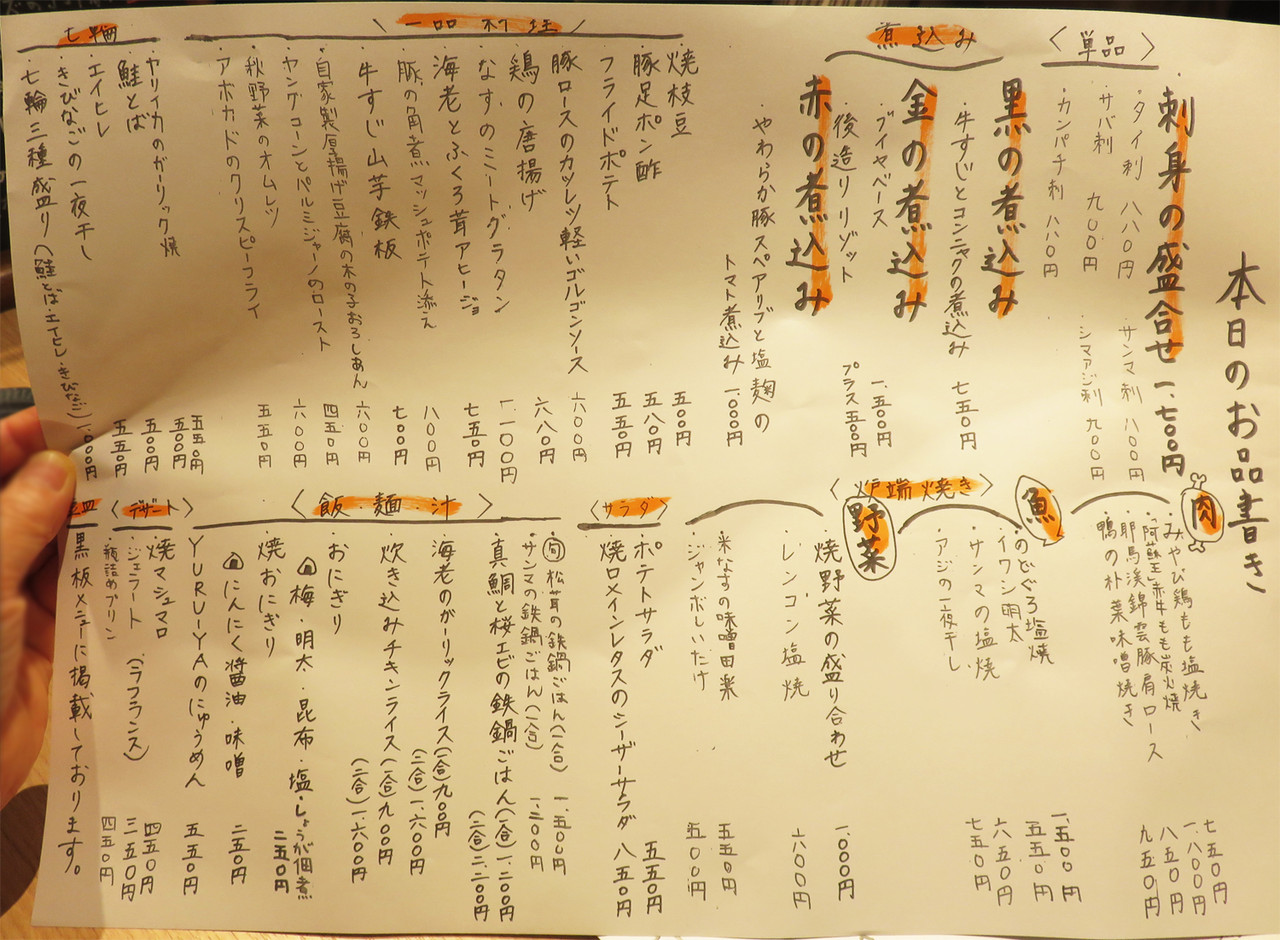 本日のお品書き
刺身の盛合せ 一、七〇〇円
〈単品〉
・タイ刺 八八〇円
・サンマ刺 八〇〇円
・サバ刺 九〇〇円
・シマアジ刺 九〇〇円
・カンパチ刺 八八〇円
煮込み
黒の煮込み
・牛すじとコンニャクの煮込み 七五〇円
金の煮込み
・ブイヤベース 一、五〇〇円
・後造りリゾット プラス五〇〇円
赤の煮込み
・やわらか豚スペアリブと塩麹の
トマト煮込み 一、〇〇〇円
〈一品料理〉
・焼枝豆 五〇〇円
・豚足ポン酢 五八〇円
・フライドポテト 五五〇円
・豚ロースのカツレツ軽いゴルゴンソース 六〇〇円
・鶏の唐揚げ 六八〇円
・なすのミートグラタン 一、一〇〇円
・海老とふくろ茸アヒージョ 七五〇円
・豚の角煮マッシュポテト添え 八〇〇円
・牛すじ山芋鉄板 七〇〇円
・自家製厚揚げ豆腐の木の子おろしあん 六〇〇円
・ヤングコーンとパルミジャーノのロースト 四五〇円
・秋野菜のオムレツ 六〇〇円
・アボカドのクリスピーフライ 五五〇円
七輪
・ヤリイカのガーリック焼 五五〇円
・鮭とば 五〇〇円
・エイヒレ 五〇〇円
・きびなごの一夜干し 五五〇円
・七輪三種盛り(鮭とば・エイヒレ・きびなご) 一、〇〇〇円
〈炉端焼き〉
肉
・みやび鶏もも塩焼き 七五〇円
・阿蘇王赤牛もも炭火焼 一、八〇〇円
・耶馬渓錦雲豚肩ロース 八五〇円
・鴨の朴葉味噌焼き 九五〇円
魚
・のどぐろ塩焼 一、五〇〇円
・イワシ明太 五五〇円
・サンマの塩焼 六五〇円
・アジの一夜干し 七五〇円
野菜
・焼野菜の盛り合わせ 一、〇〇〇円
・レンコン塩焼 六〇〇円
・米なすの味噌田楽 五五〇円
・ジャンボしいたけ 五〇〇円
〈サラダ〉
・ポテトサラダ 五五〇円
・焼ロメインレタスのシーザーサラダ 八五〇円
〈飯・麺・汁〉
・旬 松茸の鉄鍋ごはん(一合) 一、五〇〇円
・サンマの鉄鍋ごはん(一合) 一、二〇〇円
・真鯛と桜エビの鉄鍋ごはん(一合)一、二〇〇円
(二合)二、二〇〇円
・海老のガーリックライス(一合)九〇〇円
(二合)一、六〇〇円
・炊き込みチキンライス(一合)九〇〇円
(二合)一、六〇〇円
・おにぎり
梅・明太・昆布・塩・しょうが佃煮 二五〇円
・焼おにぎり
にんにく醤油・味噌 二五〇円
・YURU-YAのにゅうめん 五五〇円
〈デザート〉
・焼マシュマロ 四五〇円
・ジェラート(ラフランス) 三五〇円
・瓶詰めプリン 四五〇円
皿
黒板メニューに掲載しております。